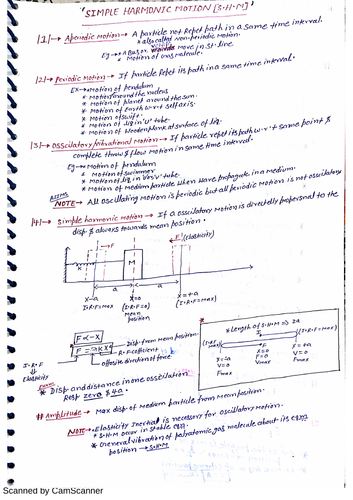 'SIMPLE HARMONIC MOTION [S·H·M]'
|1|→ Aperiodic Motion → A particle not Repet path in a same time interval.
* also called Non-periodic motion.
Eg → * A Bus or Move in st. line.
* Motion of gas molecule.
|2|→ Periodic Motion → If particle Repet its path in a same time interval.
EX → * Motion of pendulum
* Motion around the nucleus
* Motion of planet around the sun.
* Motion of Earth w·r·t self axis.
* Motion of swift.
* Motion of liq. in 'U' tube.
* Motion of Wooden plank at surface of liq.
|3|→ Osscilatory/Vibrational Motion → If particle repet its path w·r·t same point &
complete throw & flow Motion in same time interval.
Eg → Motion of pendulum
* Motion of swimmer
* Motion of liq. in U or 'V' tube.
* Motion of Medium particle When Wave propagate in a medium.
AIIMS
NOTE → All oscillating Motion is periodic but all periodic Motion is not oscillatory
|4|→ Simple harmonic Motion → If a ossilatory Motion is directely propersnal to the
disp & always towards mean position.
F
F (Elasticity)
K
M
a
a
X=-a
(I·R·F=max)
X=0
(I·R·F=0)
Mean
position
X=+a
(I·R·F=max)
F∝-X
F=-KX
Disp. from mean position.
R·F coefficient
opposite direction of force
I·R·F
Elasticity
* Length of S·H·M => 2a
(I·R·F=max)
X=-a
V=0
Fmax
X=0
F=0
Vmax
X=+a
V=0
Fmax
* Disp and distance in one oscilation
Resp zero & 4a.
# Amplitude → Max disp of Medium particle from Mean position.
NOTE → * Elasticity Inertial is necessary for oscillatory Motion.
* S·H·M occur in stable eqm.
* General vibration of polyatomic gas molecule about its eqm
position → S·H·M
Scanned by CamScanner